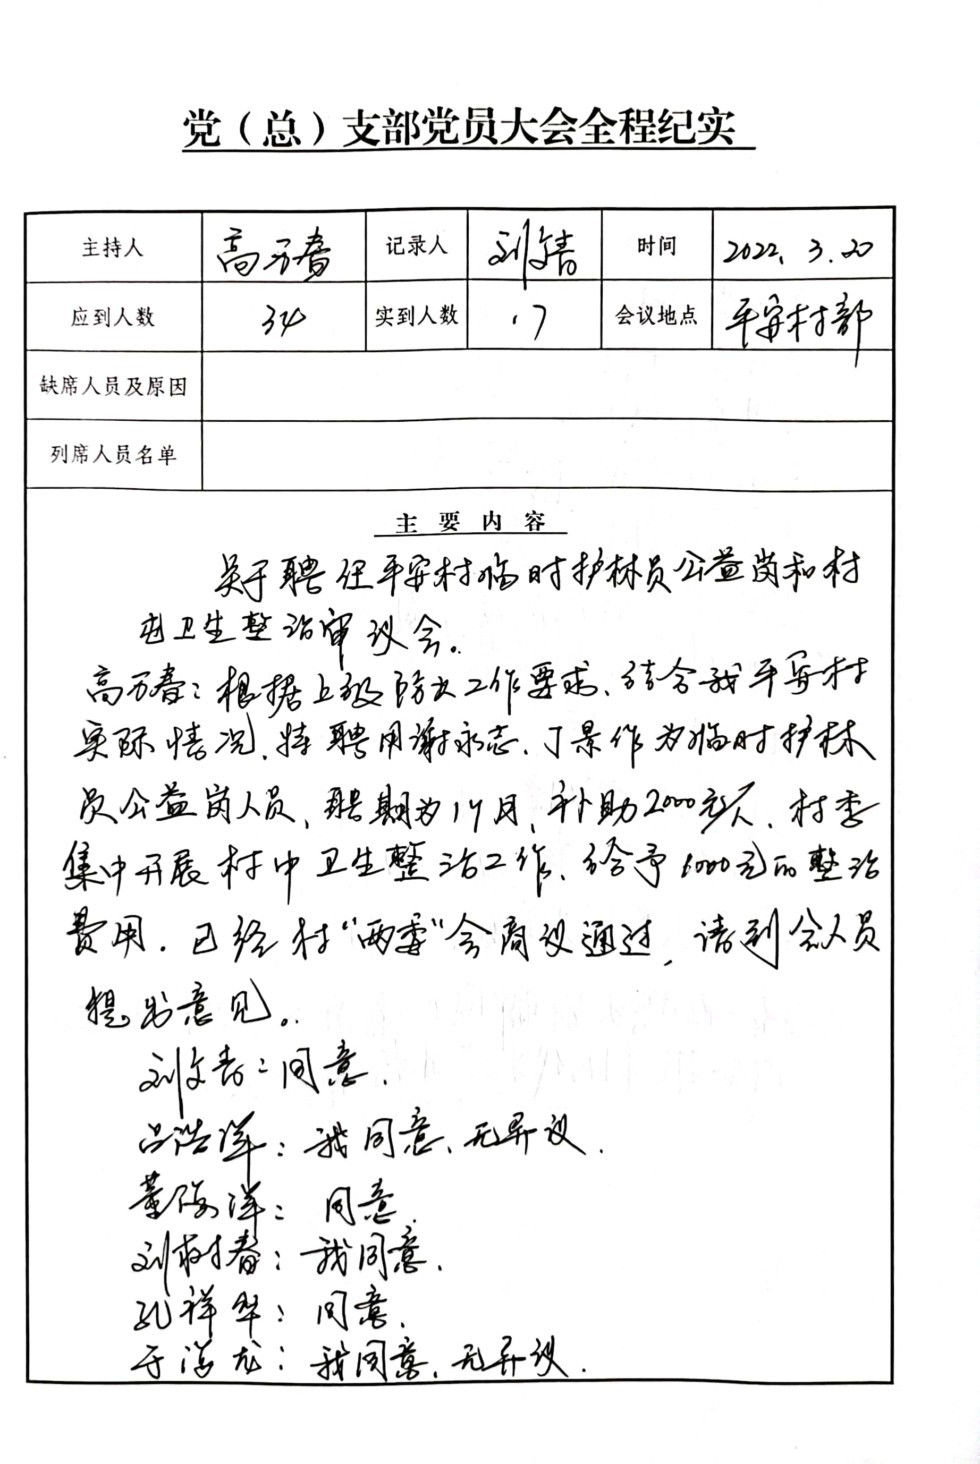 党（总）支部党员大会全程纪实
主持人 高万春 记录人 刘文青 时间 2022.3.20
应到人数 34 实到人数 17 会议地点 平安村部
缺席人员及原因
列席人员名单
主要内容
关于聘任平安村临时护林员公益岗和村
屯卫生整治审议会。
高万春：根据上级防火工作要求、结合我平安村
实际情况、持聘用谢永志、丁景作为临时护林
员公益岗人员、聘期为1个月、补助2000元/人、村委
集中开展村中卫生整治工作、给予6000元的整治
费用．已经村“两委”会商议通过，请到会人员
提出意见。
刘文青：同意．
吕浩洋：我同意、无异议．
董海洋：同意．
刘树春：我同意．
孔祥华：同意．
于洪龙：我同意、无异议．